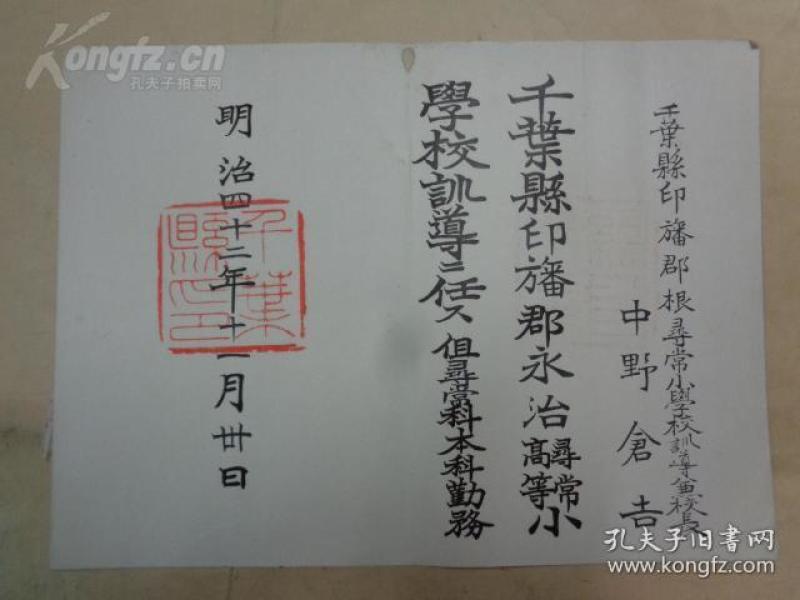 千葉縣印旛郡根尋常小學校訓導兼校長
中野倉吉
千葉縣印旛郡永治尋常高等小
學校訓導ニ任ス 但尋常科本科勤務
明治四十二年十一月廿日
千葉
縣印
Kongfz.cn
孔夫子拍卖网
孔夫子旧书网
www.kongfz.com